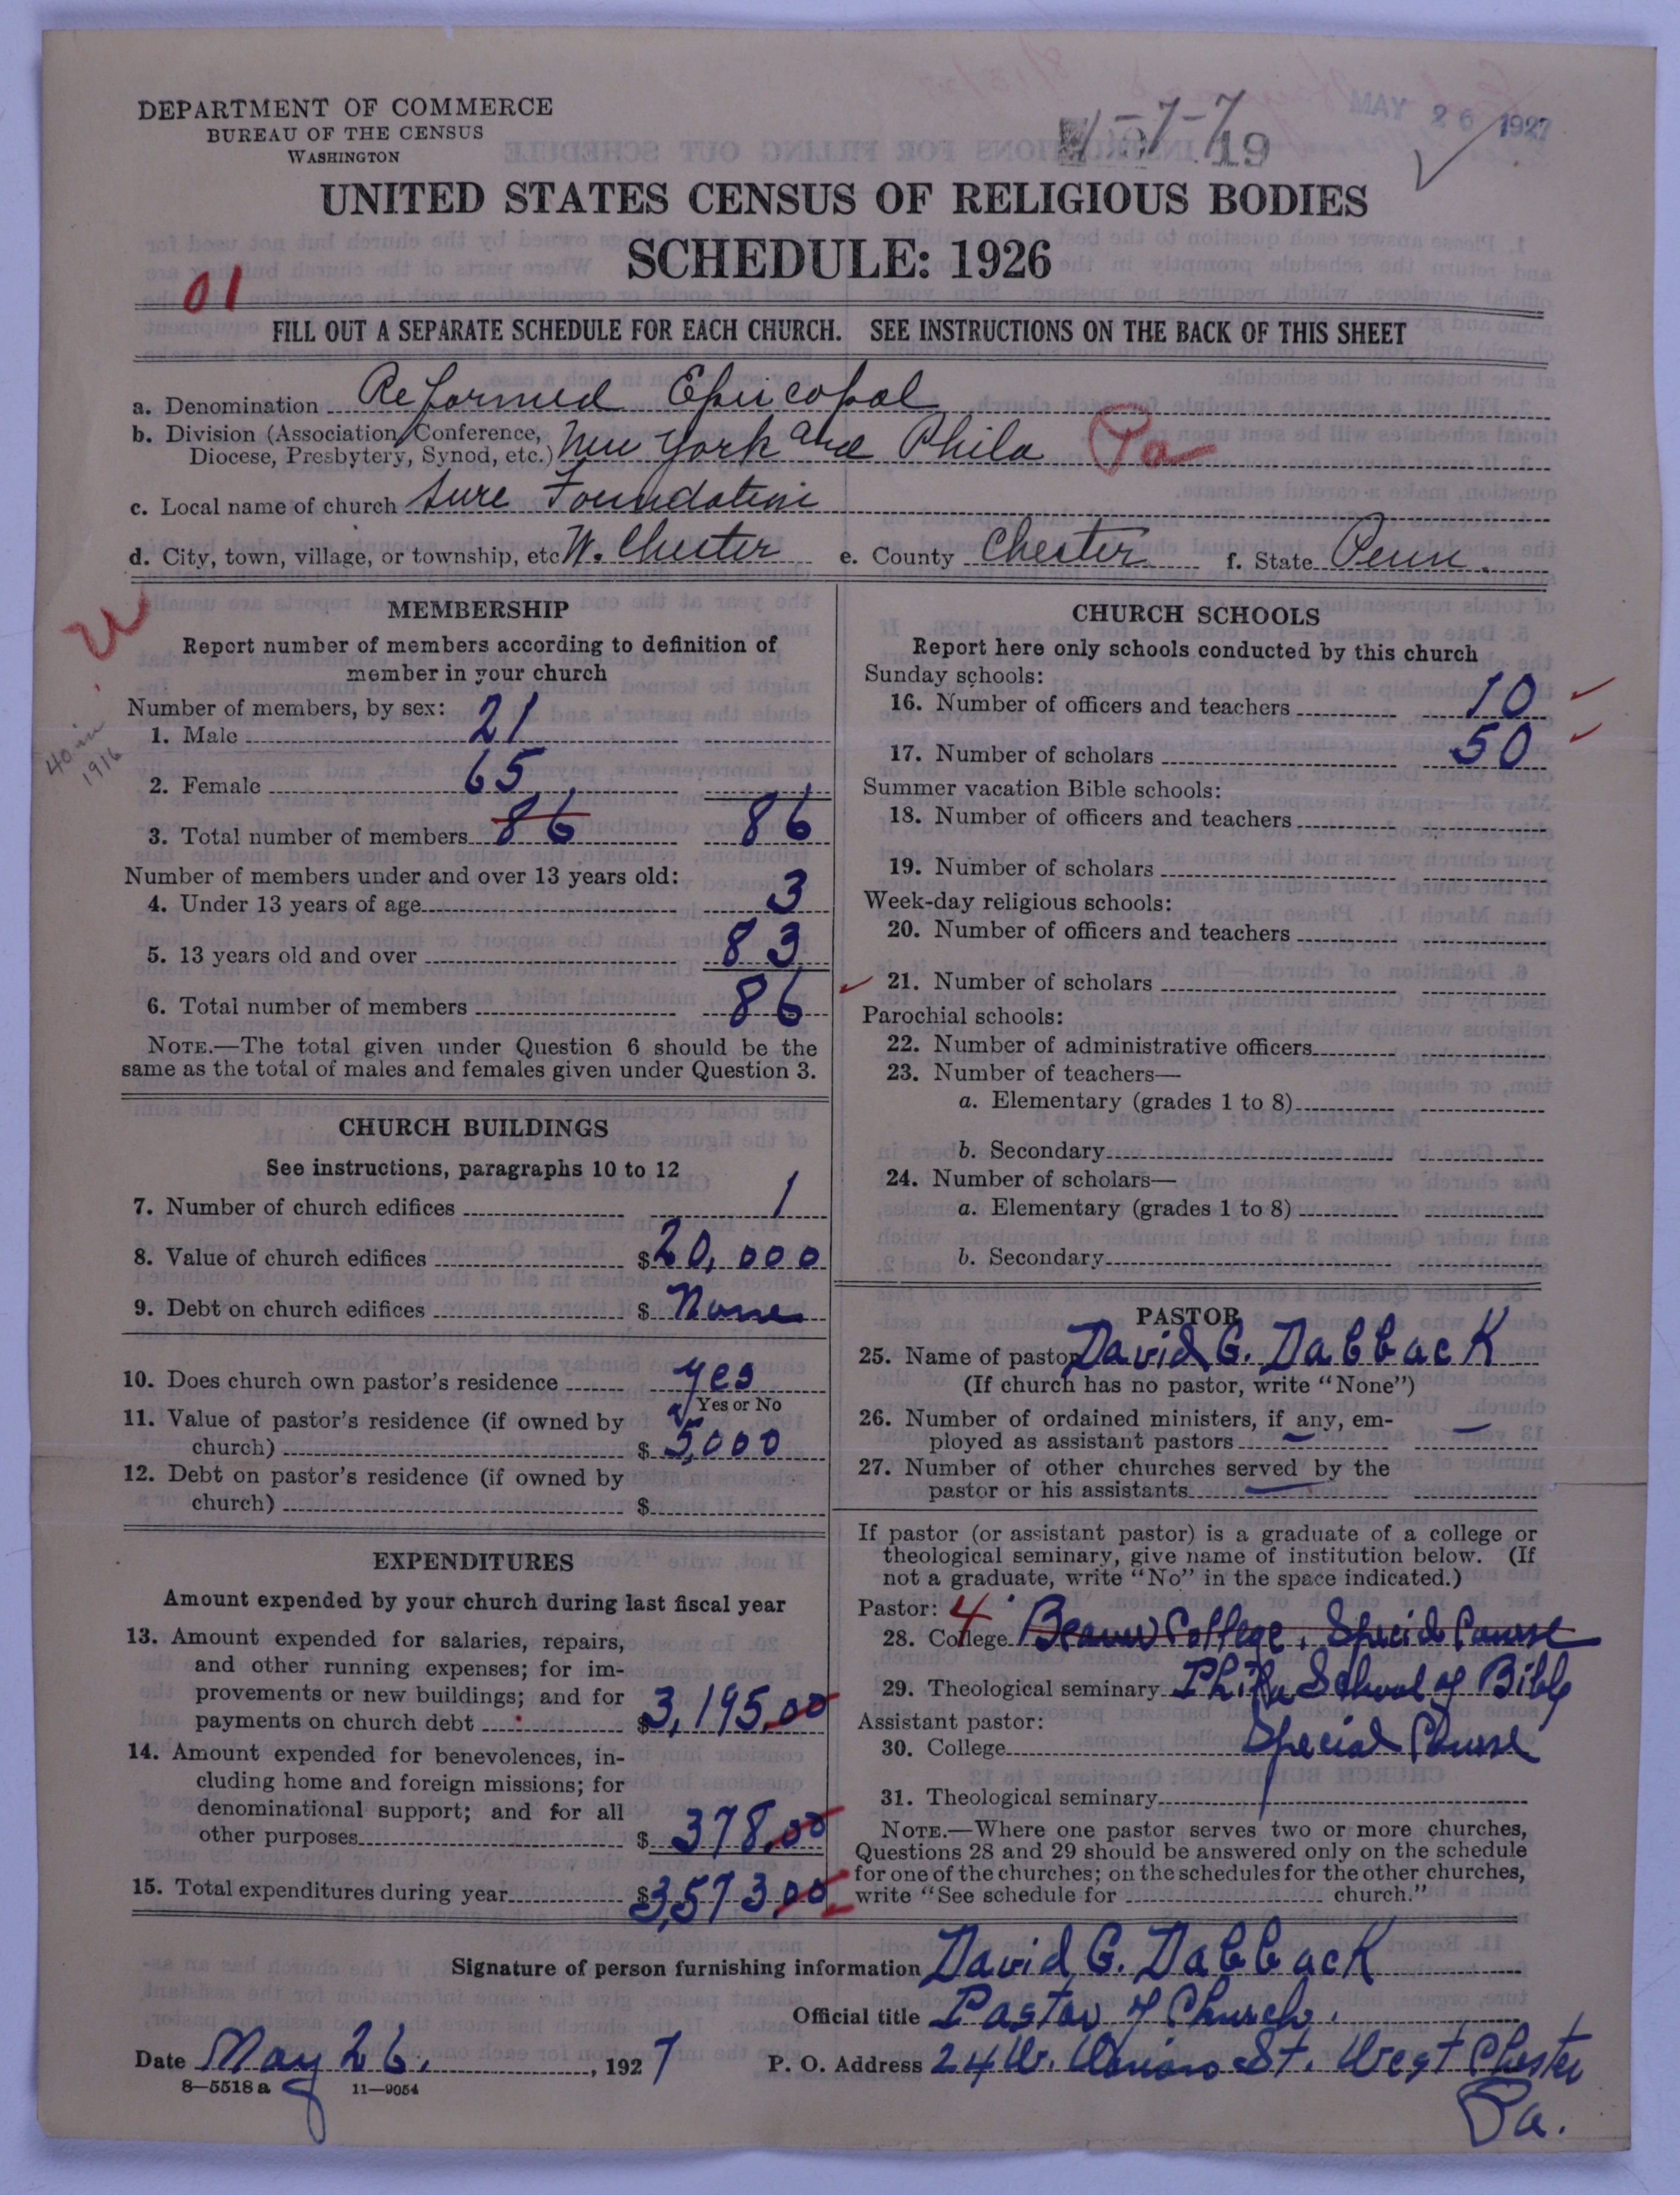 DEPARTMENT OF COMMERCE
BUREAU OF THE CENSUS
WASHINGTON
MAY 26 1927
19
UNITED STATES CENSUS OF RELIGIOUS BODIES
SCHEDULE: 1926
01
FILL OUT A SEPARATE SCHEDULE FOR EACH CHURCH. SEE INSTRUCTIONS ON THE BACK OF THIS SHEET
a. Denomination Reformed Episcopal
b. Division (Association, Conference, Diocese, Presbytery, Synod, etc.) New York and Phila Pa
c. Local name of church Sure Foundation
d. City, town, village, or township, etc W. Chester e. County Chester f. State Penn.
MEMBERSHIP
Report number of members according to definition of
member in your church
Number of members, by sex:
40 in 1916
1. Male 21
2. Female 65
3. Total number of members 86 86
Number of members under and over 13 years old:
4. Under 13 years of age 3
5. 13 years old and over 83
6. Total number of members 86
NOTE.—The total given under Question 6 should be the
same as the total of males and females given under Question 3.
CHURCH BUILDINGS
See instructions, paragraphs 10 to 12
7. Number of church edifices 1
8. Value of church edifices $20,000
9. Debt on church edifices $ None
10. Does church own pastor's residence yes
Yes or No
11. Value of pastor's residence (if owned by
church) $ 5,000
12. Debt on pastor's residence (if owned by
church) $
EXPENDITURES
Amount expended by your church during last fiscal year
13. Amount expended for salaries, repairs,
and other running expenses; for im-
provements or new buildings; and for
payments on church debt $3,195.00
14. Amount expended for benevolences, in-
cluding home and foreign missions; for
denominational support; and for all
other purposes $ 378.00
15. Total expenditures during year $3,573.00
CHURCH SCHOOLS
Report here only schools conducted by this church
Sunday schools:
16. Number of officers and teachers 10
17. Number of scholars 50
Summer vacation Bible schools:
18. Number of officers and teachers
19. Number of scholars
Week-day religious schools:
20. Number of officers and teachers
21. Number of scholars
Parochial schools:
22. Number of administrative officers
23. Number of teachers—
a. Elementary (grades 1 to 8)
b. Secondary
24. Number of scholars—
a. Elementary (grades 1 to 8)
b. Secondary
PASTOR
25. Name of pastor David G. Dabback
(If church has no pastor, write "None")
26. Number of ordained ministers, if any, em-
ployed as assistant pastors —
27. Number of other churches served by the
pastor or his assistants
If pastor (or assistant pastor) is a graduate of a college or
theological seminary, give name of institution below. (If
not a graduate, write "No" in the space indicated.)
Pastor: 4
28. College Beaver College, Special Course
29. Theological seminary Phila School of Bible
Assistant pastor:
30. College Special Course
31. Theological seminary
NOTE.—Where one pastor serves two or more churches,
Questions 28 and 29 should be answered only on the schedule
for one of the churches; on the schedules for the other churches,
write "See schedule for church."
Signature of person furnishing information David G. Dabback
Official title Pastor of Church.
Date May 26, 1927 P. O. Address 24 W. Union St. West Chester
Pa.
8—5518 a 11—9054